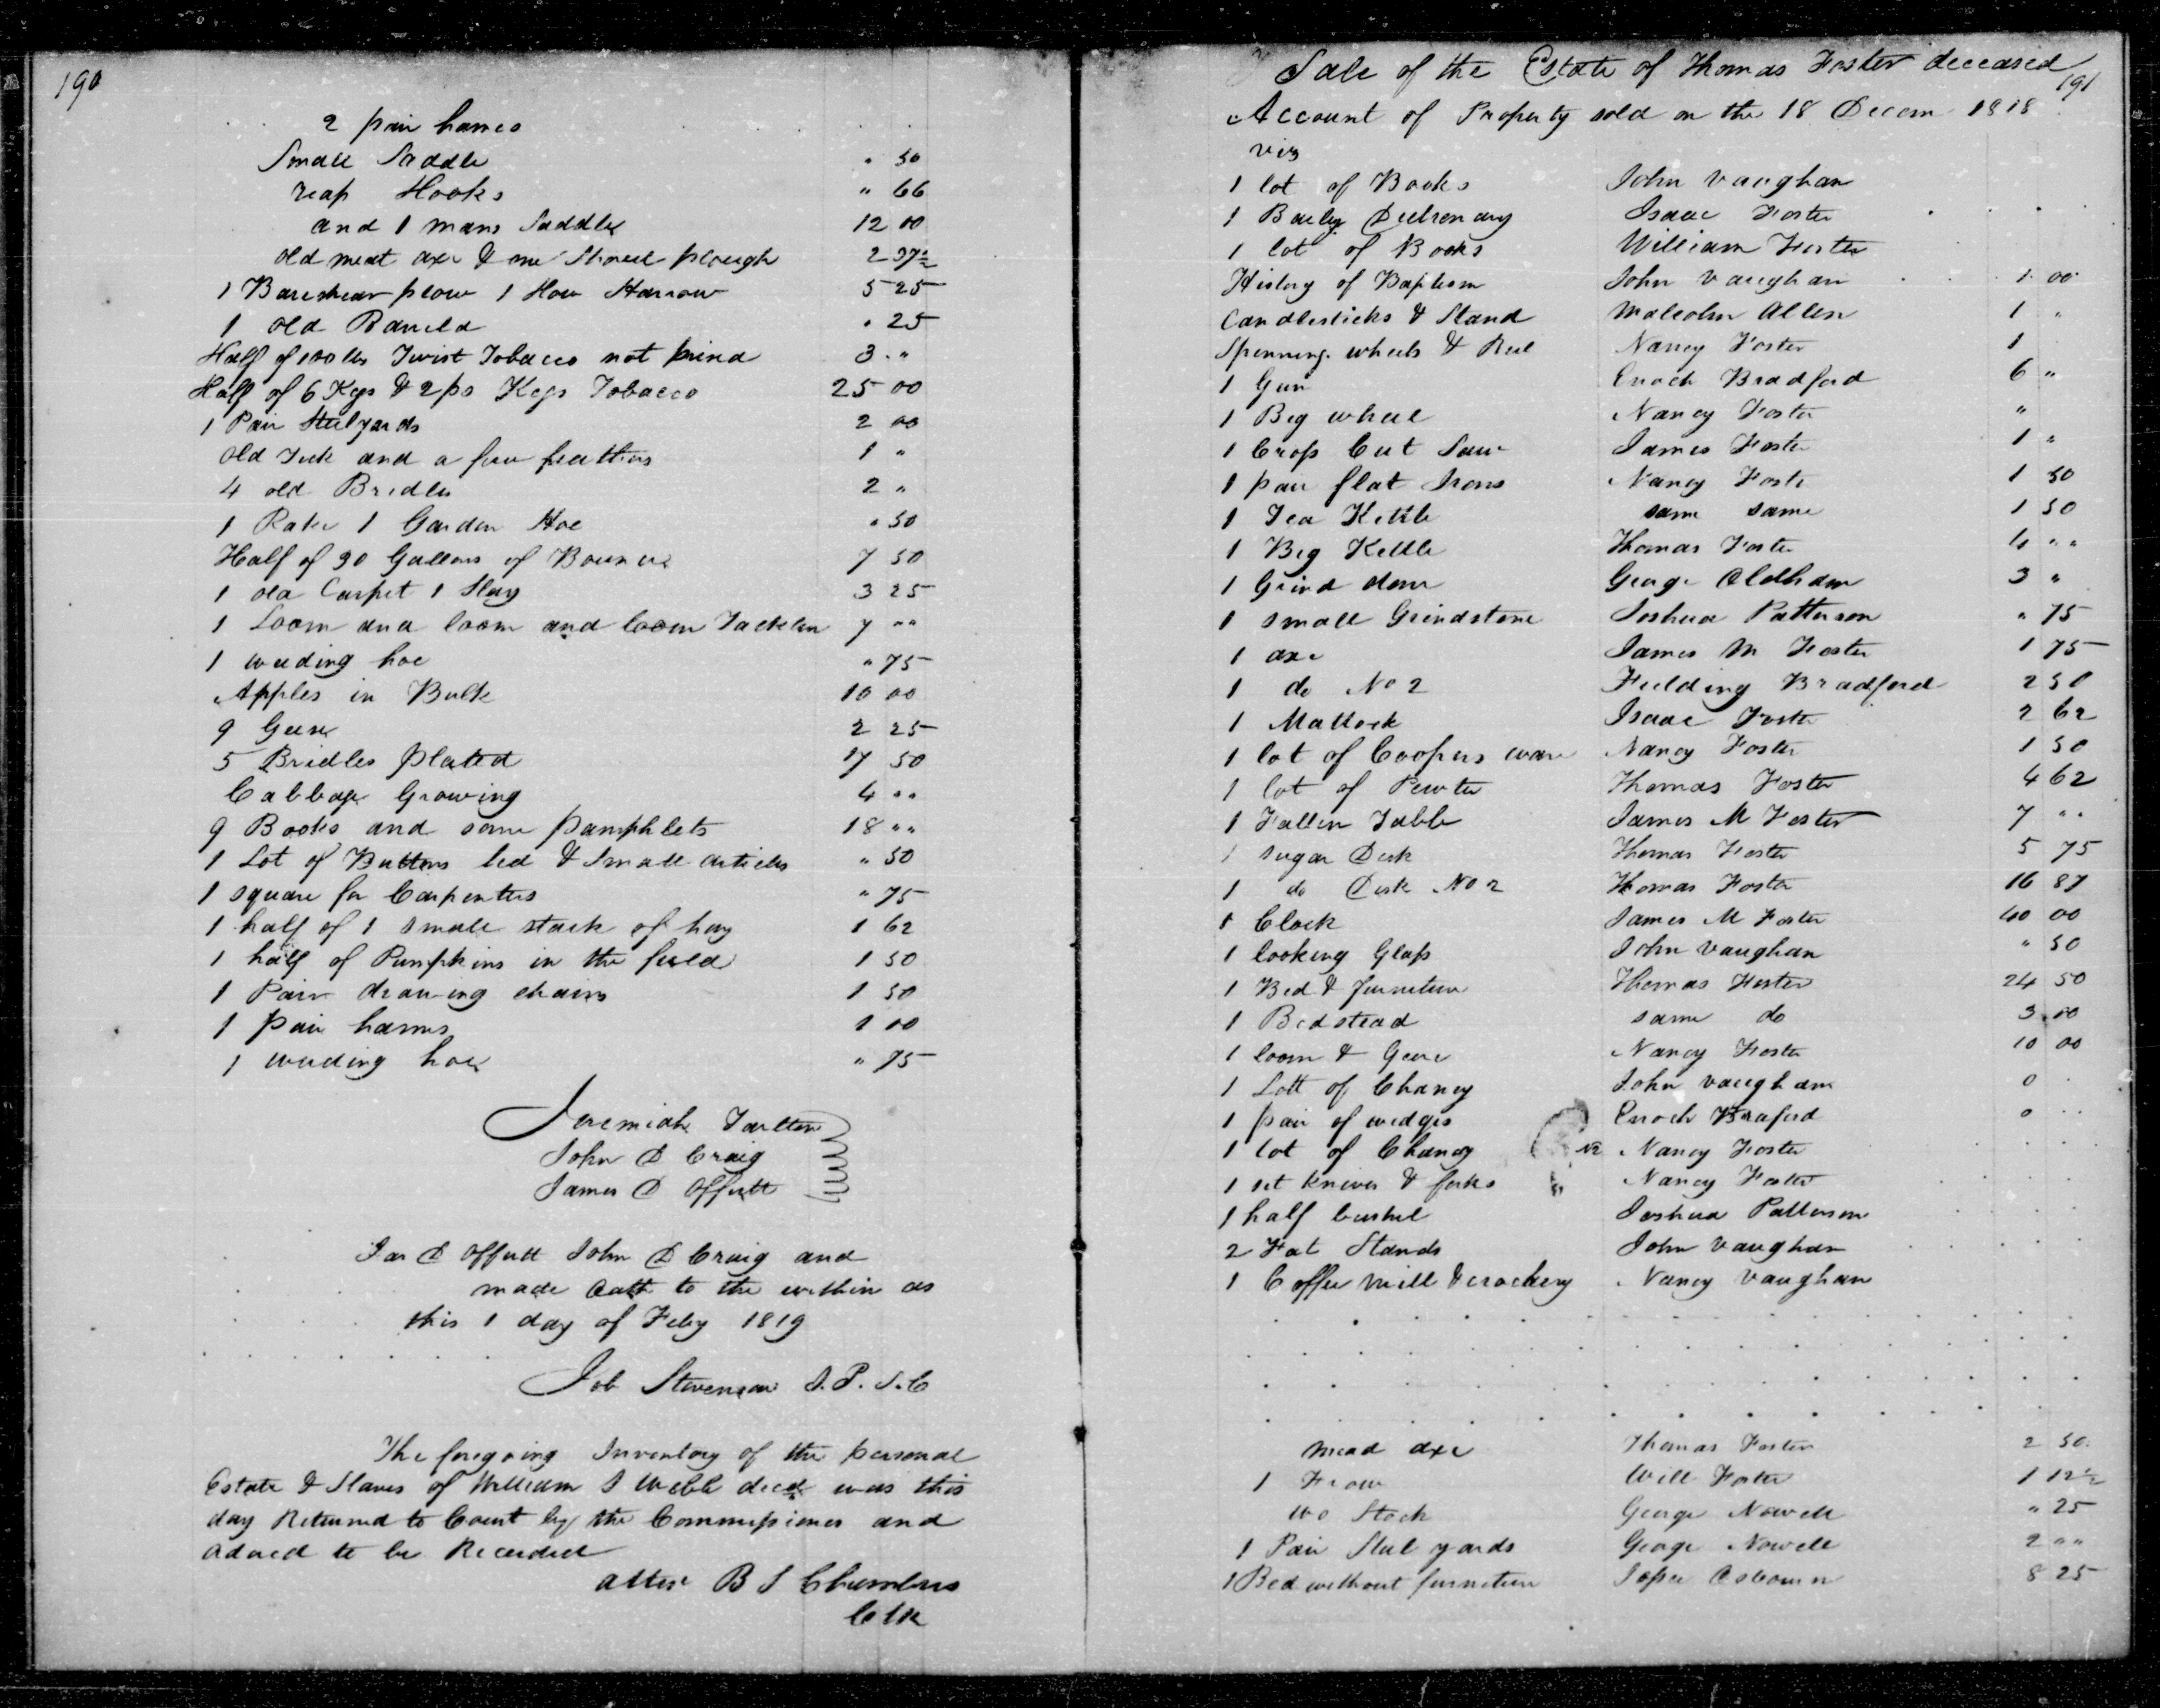 190
2 pair hames
Small Saddle " 50
reap Hooks " 66
and 1 mans Saddle 12 00
old meat axe & one Shovel plough 2 37½
1 Bareshear plow 1 How Harrow 5 25
1 old " 25
Half of 100 lbs Twist Tobacco not prind 3 "
Half of 6 Kegs & 2 ps Kegs Tobacco 25 00
1 Pair Steelyards 2 00
old Tick and a few feathers 1 "
4 old Bridles 2 "
1 Rake 1 Garden Hoe " 50
Half of 30 Gallons of 7 50
1 old Carpet 1 Slay 3 25
1 Loom and loom and loom Tacklen 7 ""
1 weeding hoe " 75
Apples in Bulk 10 00
9 Geese 2 25
5 Bridles plated 17 50
Cabbage Growing 4 ""
9 Books and some pamphlets 18 ""
1 Lot of Buttons led & Small articles " 50
1 square for Carpenters " 75
1 half of 1 small stack of hay 1 62
1 half of Pumpkins in the field 1 50
1 Pair drawing chains 1 50
1 pair hames 1 00
1 weeding hoe " 75
Jeremiah Tarlton
John D Craig
James D Offutt
Jas D Offutt John D Craig and
made oath to the within as
this 1 day of Feby 1819
Job Stevenson J. P. S. C
The foregoing Inventory of the personal
Estate & Slaves of William S Webb decd was this
day Returned to Court by the Commissioners and
adured to be Recorded
attest B S Chambers
Clk
Sale of the Estate of Thomas Foster deceased
191
Account of Property sold on the 18 Decem 1818
viz
1 lot of Books John Vaughan
1 Baily Isaac Foster
1 lot of Books William Foster
History of Baptism John Vaughan 1 00
Candlesticks & Stand Malcolm Allen 1 "
Spinning wheels & Reel Nancy Foster 1
1 Gun Enoch Bradford 6 "
1 Big wheel Nancy Foster "
1 Cross Cut Saw James Foster 1 "
1 pair flat Irons Nancy Foste 1 50
1 Tea Kettle same same 1 50
1 Big Kettle Thomas Foster 4 ""
1 Grind stone George Oldham 3 "
1 small Grindstone Joshua Patterson " 75
1 axe James M Foster 1 75
1 do No 2 Fielding Bradford 2 50
1 Mattock Isaac Foster 2 62
1 lot of Coopers ware Nancy Foster 1 50
1 lot of Pewter Thomas Foster 4 62
1 Fallin Table James M Foster 7 ""
1 sugar Desk Thomas Foster 5 75
1 do Desk No 2 Thomas Foster 16 87
1 Clock James M Foster 40 00
1 looking Glass John Vaughan " 50
1 Bed & furniture Thomas Foster 24 50
1 Bedstead same do 3 00
1 loom & Geere Nancy Foster 10 00
1 Lott of Chaney John Vaughan 0
1 pair of wedges Enoch Braford 0
1 lot of Chaney Nancy Foster
1 set knives & forks Nancy Foster
1 half bushel Joshua Patterson
2 Fat Stands John Vaughan
1 Coffee mill & crockery Nancy Vaughan
mead axe Thomas Foster 2 50
1 Frow Will Foster 1 12½
Stock George Nowell " 25
1 Pair Steel yards George Nowell 2 ""
1 Bed without furniture Jesse Osbourn 8 25